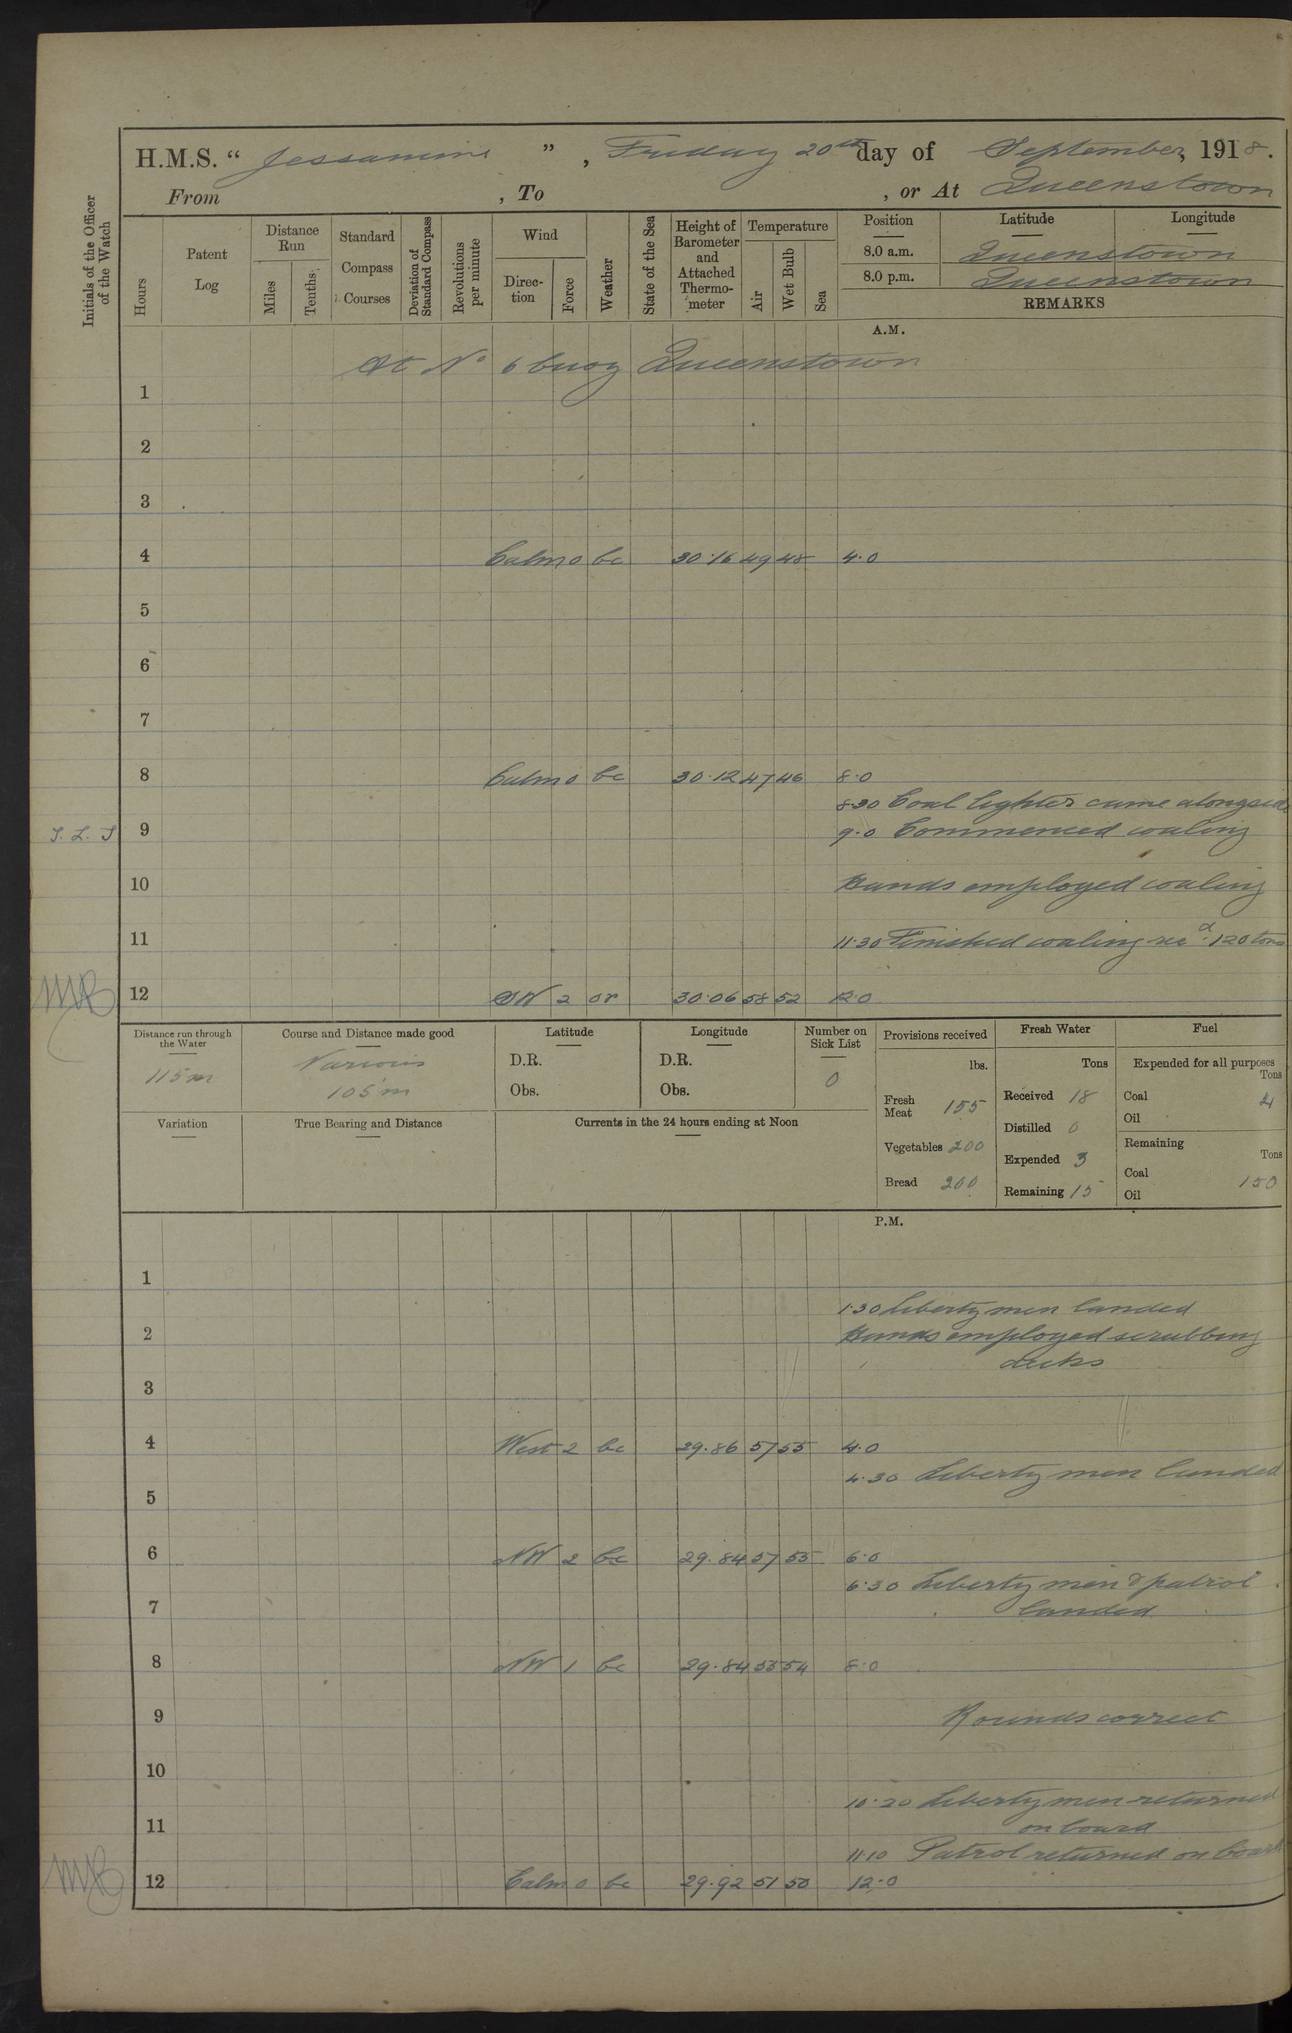 H.M.S. “ Jessamine ” , Friday 20th day of September, 1918.
From , To , or At Queenstown
Initials of the Officer of the Watch
Hours
Patent Log
Distance Run
Miles
Tenths
Standard Compass Courses
Deviation of Standard Compass
Revolutions per minute
Wind
Direc-tion
Force
Weather
State of the Sea
Height of Barometer and Attached Thermo-meter
Temperature
Air
Wet Bulb
Sea
Position Latitude Longitude
8.0 a.m. Queenstown
8.0 p.m. Queenstown
REMARKS
A.M.
At No 6 buoy Queenstown
1
2
3
4 Calm 0 bc 30.16 49 48 4.0
5
6
7
8 Calm 0 bc 30.12 47 46 8.0
8.30 Coal lighter came alongside
9 9.0 Commenced coaling
10 Hands employed coaling
11 11.30 Finished coaling recd. 120 tons
12 SW 2 or 30.06 58 52 12.0
Distance run through the Water
115 m
Course and Distance made good
Various
105 m
Latitude
D.R.
Obs.
Longitude
D.R.
Obs.
Number on Sick List
0
Variation
True Bearing and Distance
Currents in the 24 hours ending at Noon
Provisions received
lbs.
Fresh Meat 155
Vegetables 200
Bread 200
Fresh Water
Tons
Received 18
Distilled 0
Expended 3
Remaining 15
Fuel
Expended for all purposes
Tons
Coal 4
Oil
Remaining
Tons
Coal 150
Oil
P.M.
1
1.30 Liberty men landed
2 Hands employed scrubbing
decks
3
4 West 2 bc 29.86 57 55 4.0
4.30 Liberty men landed
5
6 NW 2 bc 29.84 57 55 6.0
6.30 Liberty men & patrol
7 landed
8 NW 1 bc 29.84 55 54 8.0
9 Rounds correct
10
10.20 Liberty men returned
11 on board
11.10 Patrol returned on board
12 Calm 0 bc 29.92 51 50 12.0